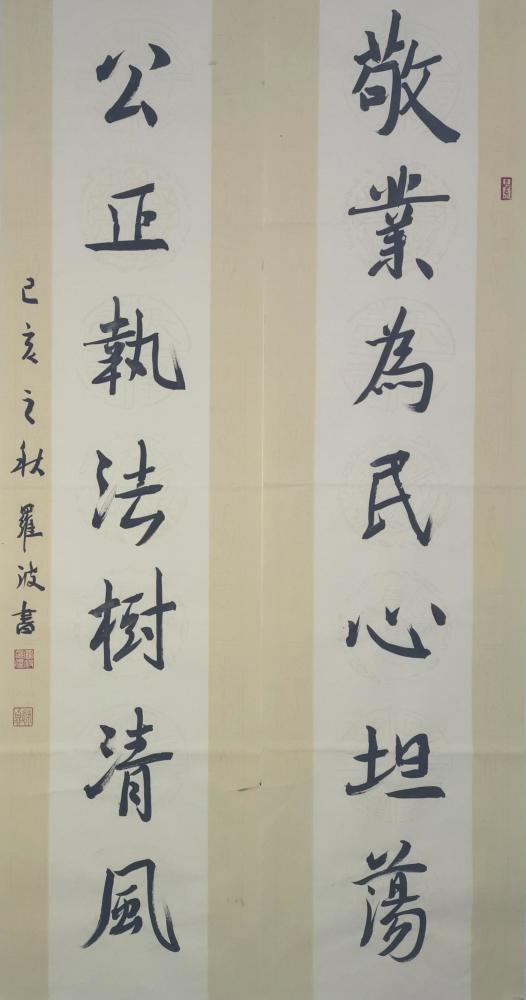 敬業為民心坦蕩
公正執法樹清風
己亥之秋羅波書